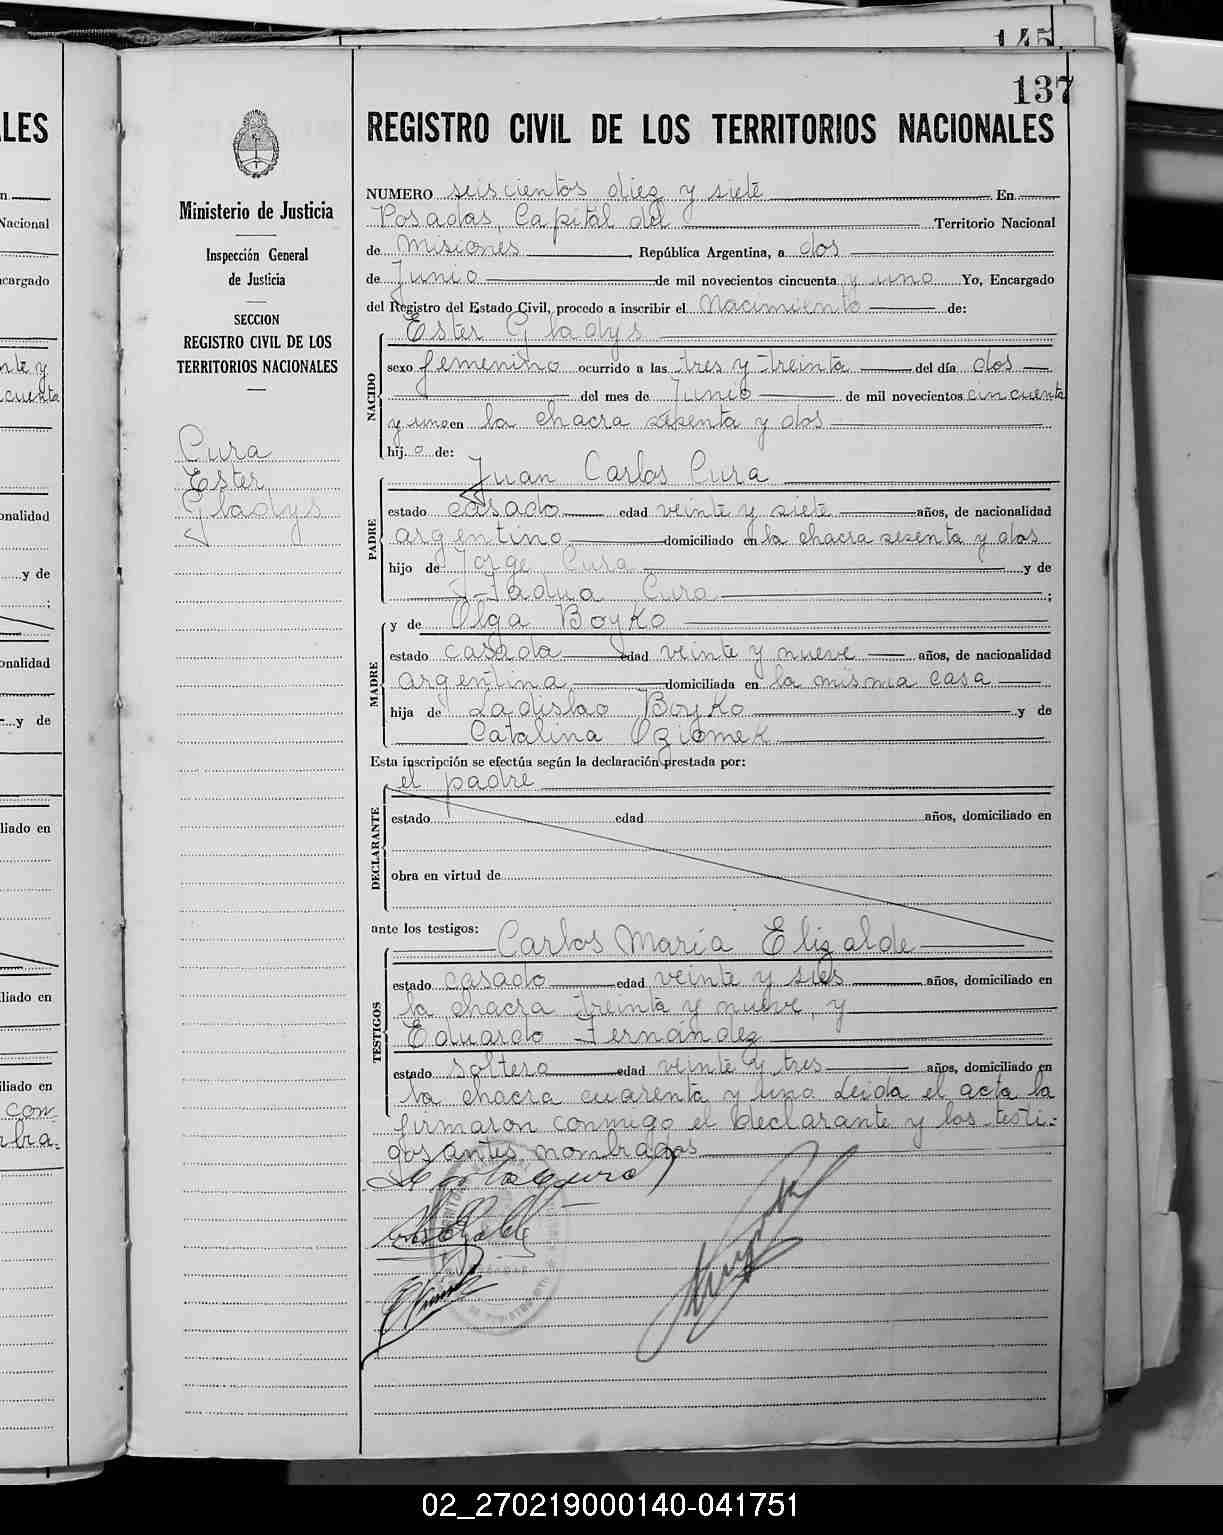 145
137
LES
REGISTRO CIVIL DE LOS TERRITORIOS NACIONALES
Ministerio de Justicia
Inspección General
de Justicia
SECCION
REGISTRO CIVIL DE LOS
TERRITORIOS NACIONALES
Cura
Ester
Gladys
NUMERO seiscientos diez y siete En
Posadas, Capital del Territorio Nacional
de Misiones República Argentina, a dos
de Junio de mil novecientos cincuenta y uno Yo, Encargado
del Registro del Estado Civil, procedo a inscribir el Nacimiento de:
Ester Gladys
NACIDO
sexo femenino ocurrido a las tres y treinta del día dos
del mes de Junio de mil novecientos cincuenta
y uno en la chacra sesenta y dos
hij o de:
Juan Carlos Cura
PADRE
estado casado edad veinte y siete años, de nacionalidad
argentino domiciliado en la chacra sesenta y dos
hijo de Jorge Cura y de
Fadua Cura ;
y de Olga Boyko
MADRE
estado casada edad veinte y nueve años, de nacionalidad
argentina domiciliada en la misma casa
hija de Ladislao Boyko y de
Catalina Oziomek
Esta inscripción se efectúa según la declaración prestada por:
el padre
DECLARANTE
estado edad años, domiciliado en
obra en virtud de
ante los testigos:
Carlos María Elizalde
TESTIGOS
estado casado edad veinte y sies años, domiciliado en
la chacra treinta y nueve, y
Eduardo Fernández
estado soltero edad veinte y tres años, domiciliado en
la chacra cuarenta y una Leida el acta la
firmaron conmigo el declarante y los testi-
gos antes nombrados
02_270219000140-041751